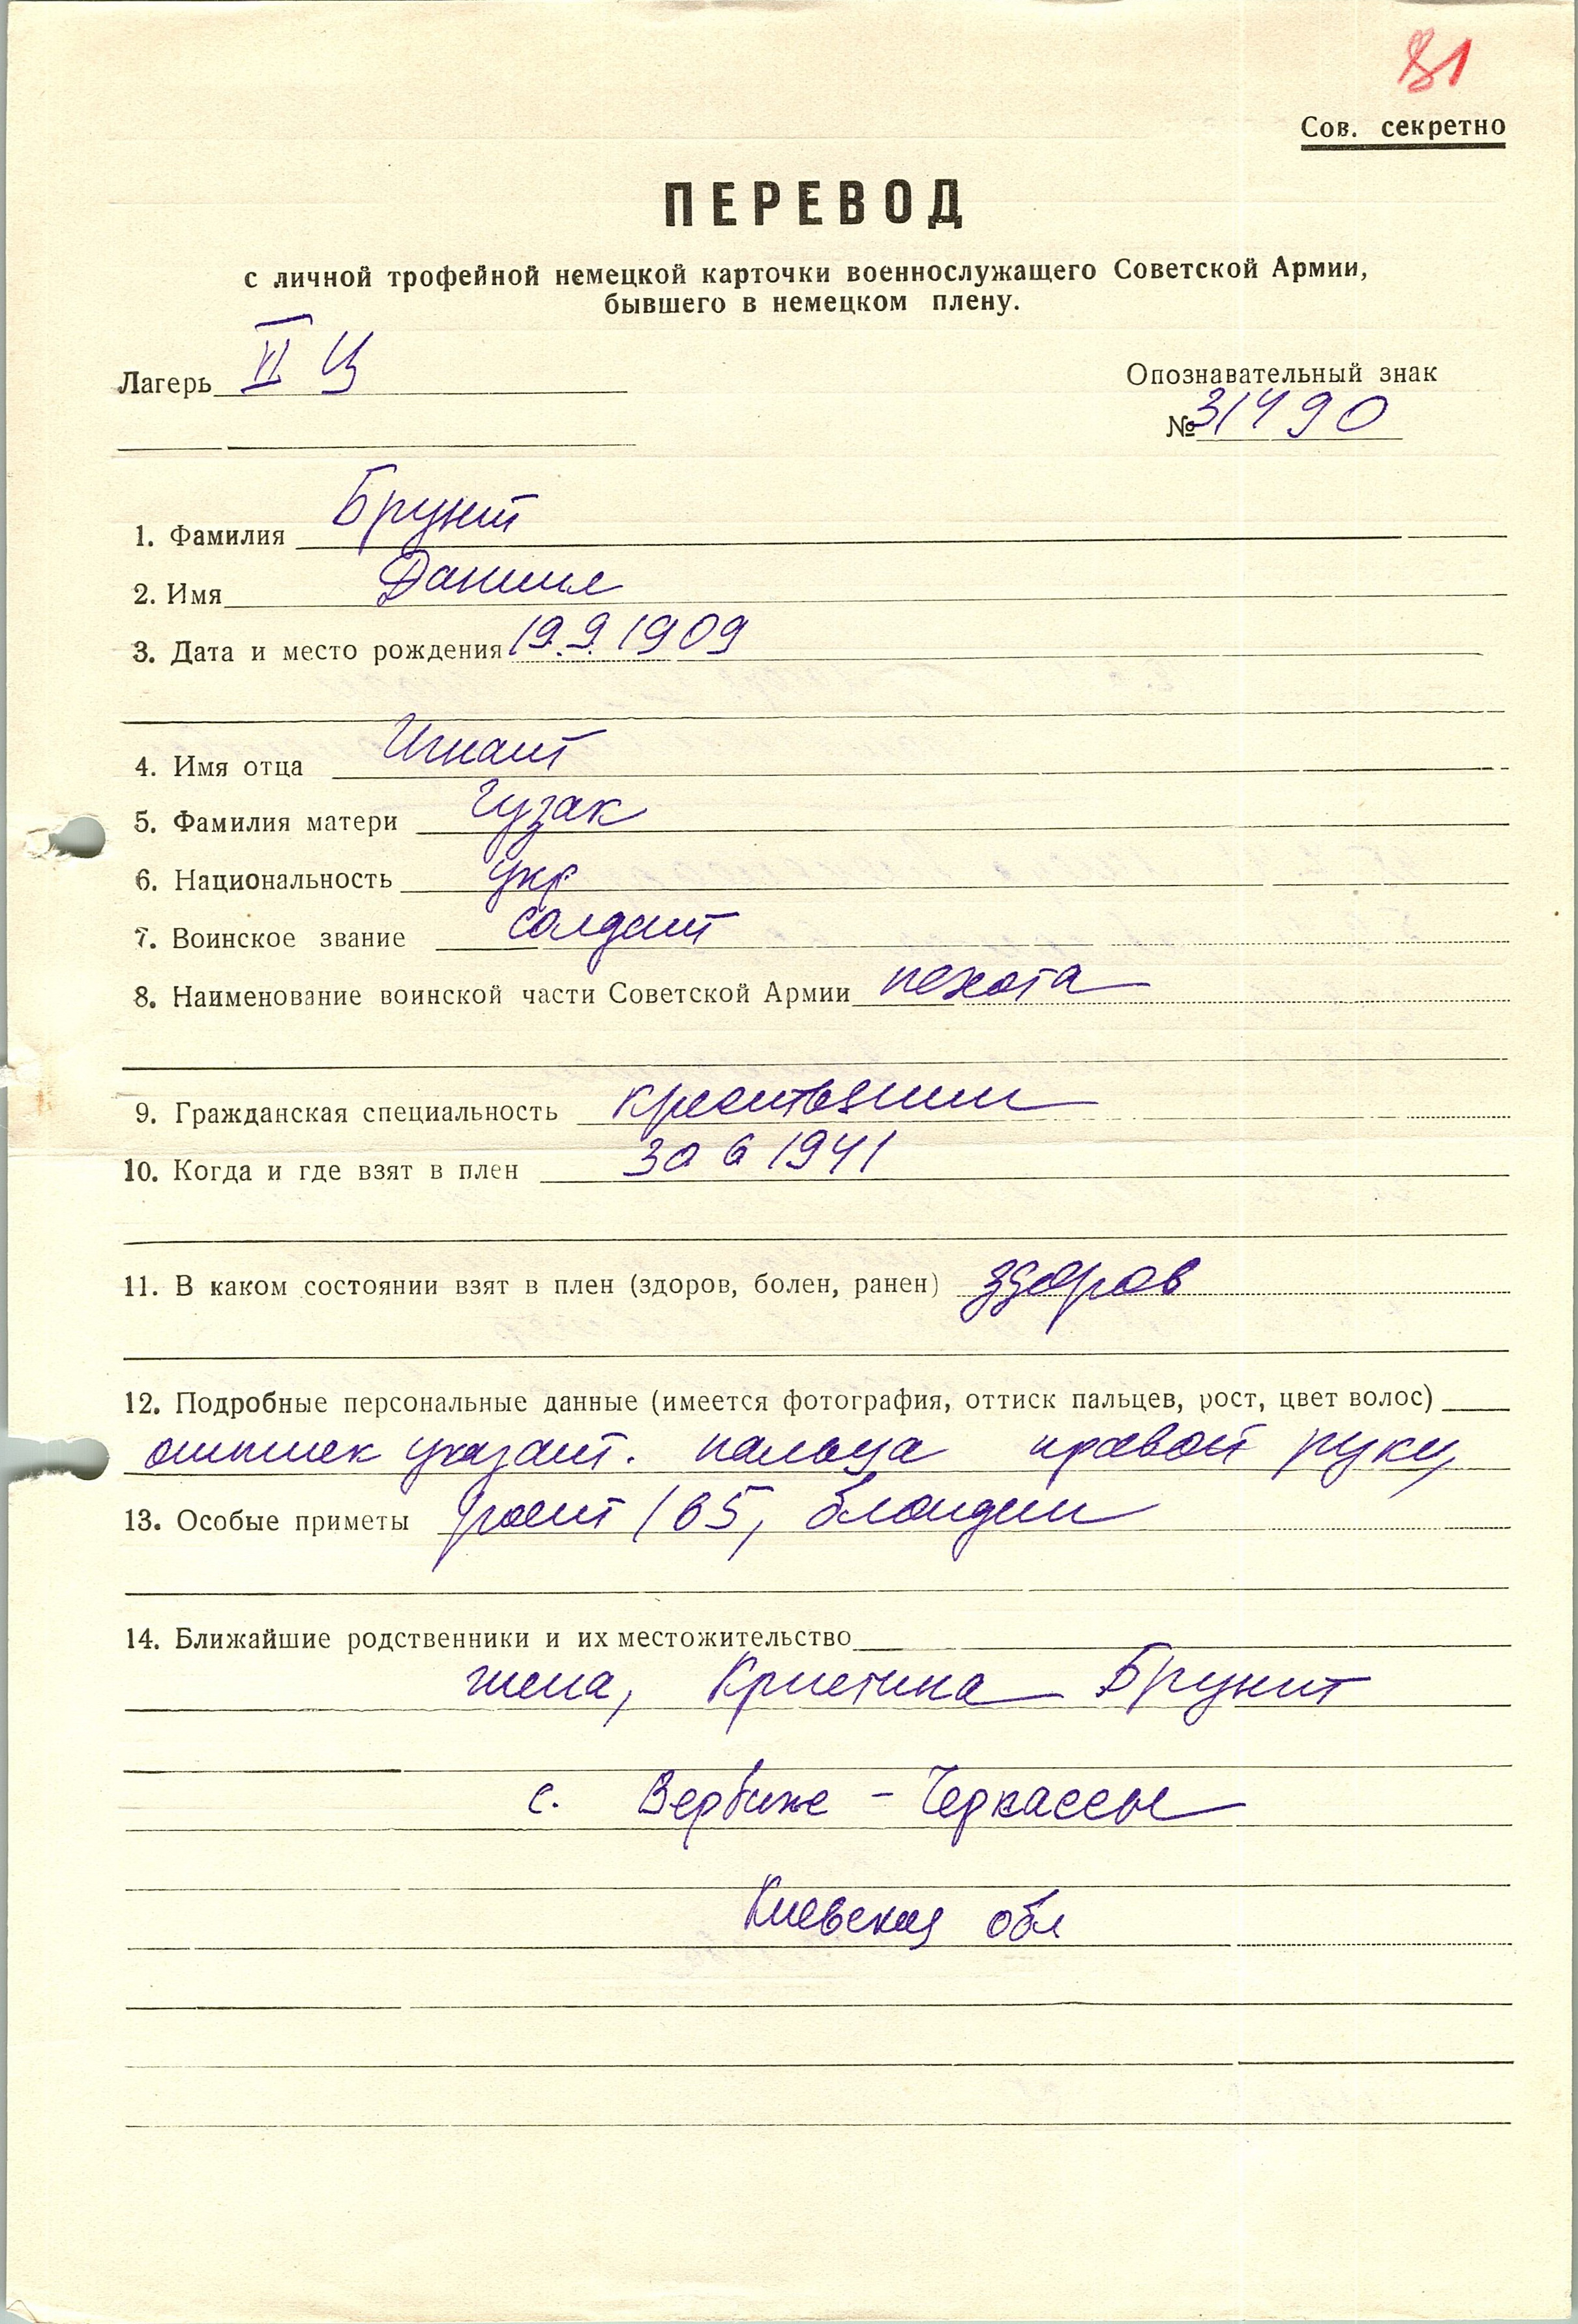 81
Сов. секретно
ПЕРЕВОД
с личной трофейной немецкой карточки военнослужащего Советской Армии,
бывшего в немецком плену.
Лагерь VI Ц
Опознавательный знак
№ 31490
1. Фамилия Брунит
2. Имя Даниил
3. Дата и место рождения 19.9.1909
4. Имя отца Игнат
5. Фамилия матери Гузак
6. Национальность укр
7. Воинское звание солдат
8. Наименование воинской части Советской Армии пехота
9. Гражданская специальность крестьянин
10. Когда и где взят в плен 30 6 1941
11. В каком состоянии взят в плен (здоров, болен, ранен) здоров
12. Подробные персональные данные (имеется фотография, оттиск пальцев, рост, цвет волос)
оттиск указат. пальца правой руки,
13. Особые приметы рост 165, блондин
14. Ближайшие родственники и их местожительство
жена, Кристина Брунит
с. Вербине - Черкассы
Киевская обл